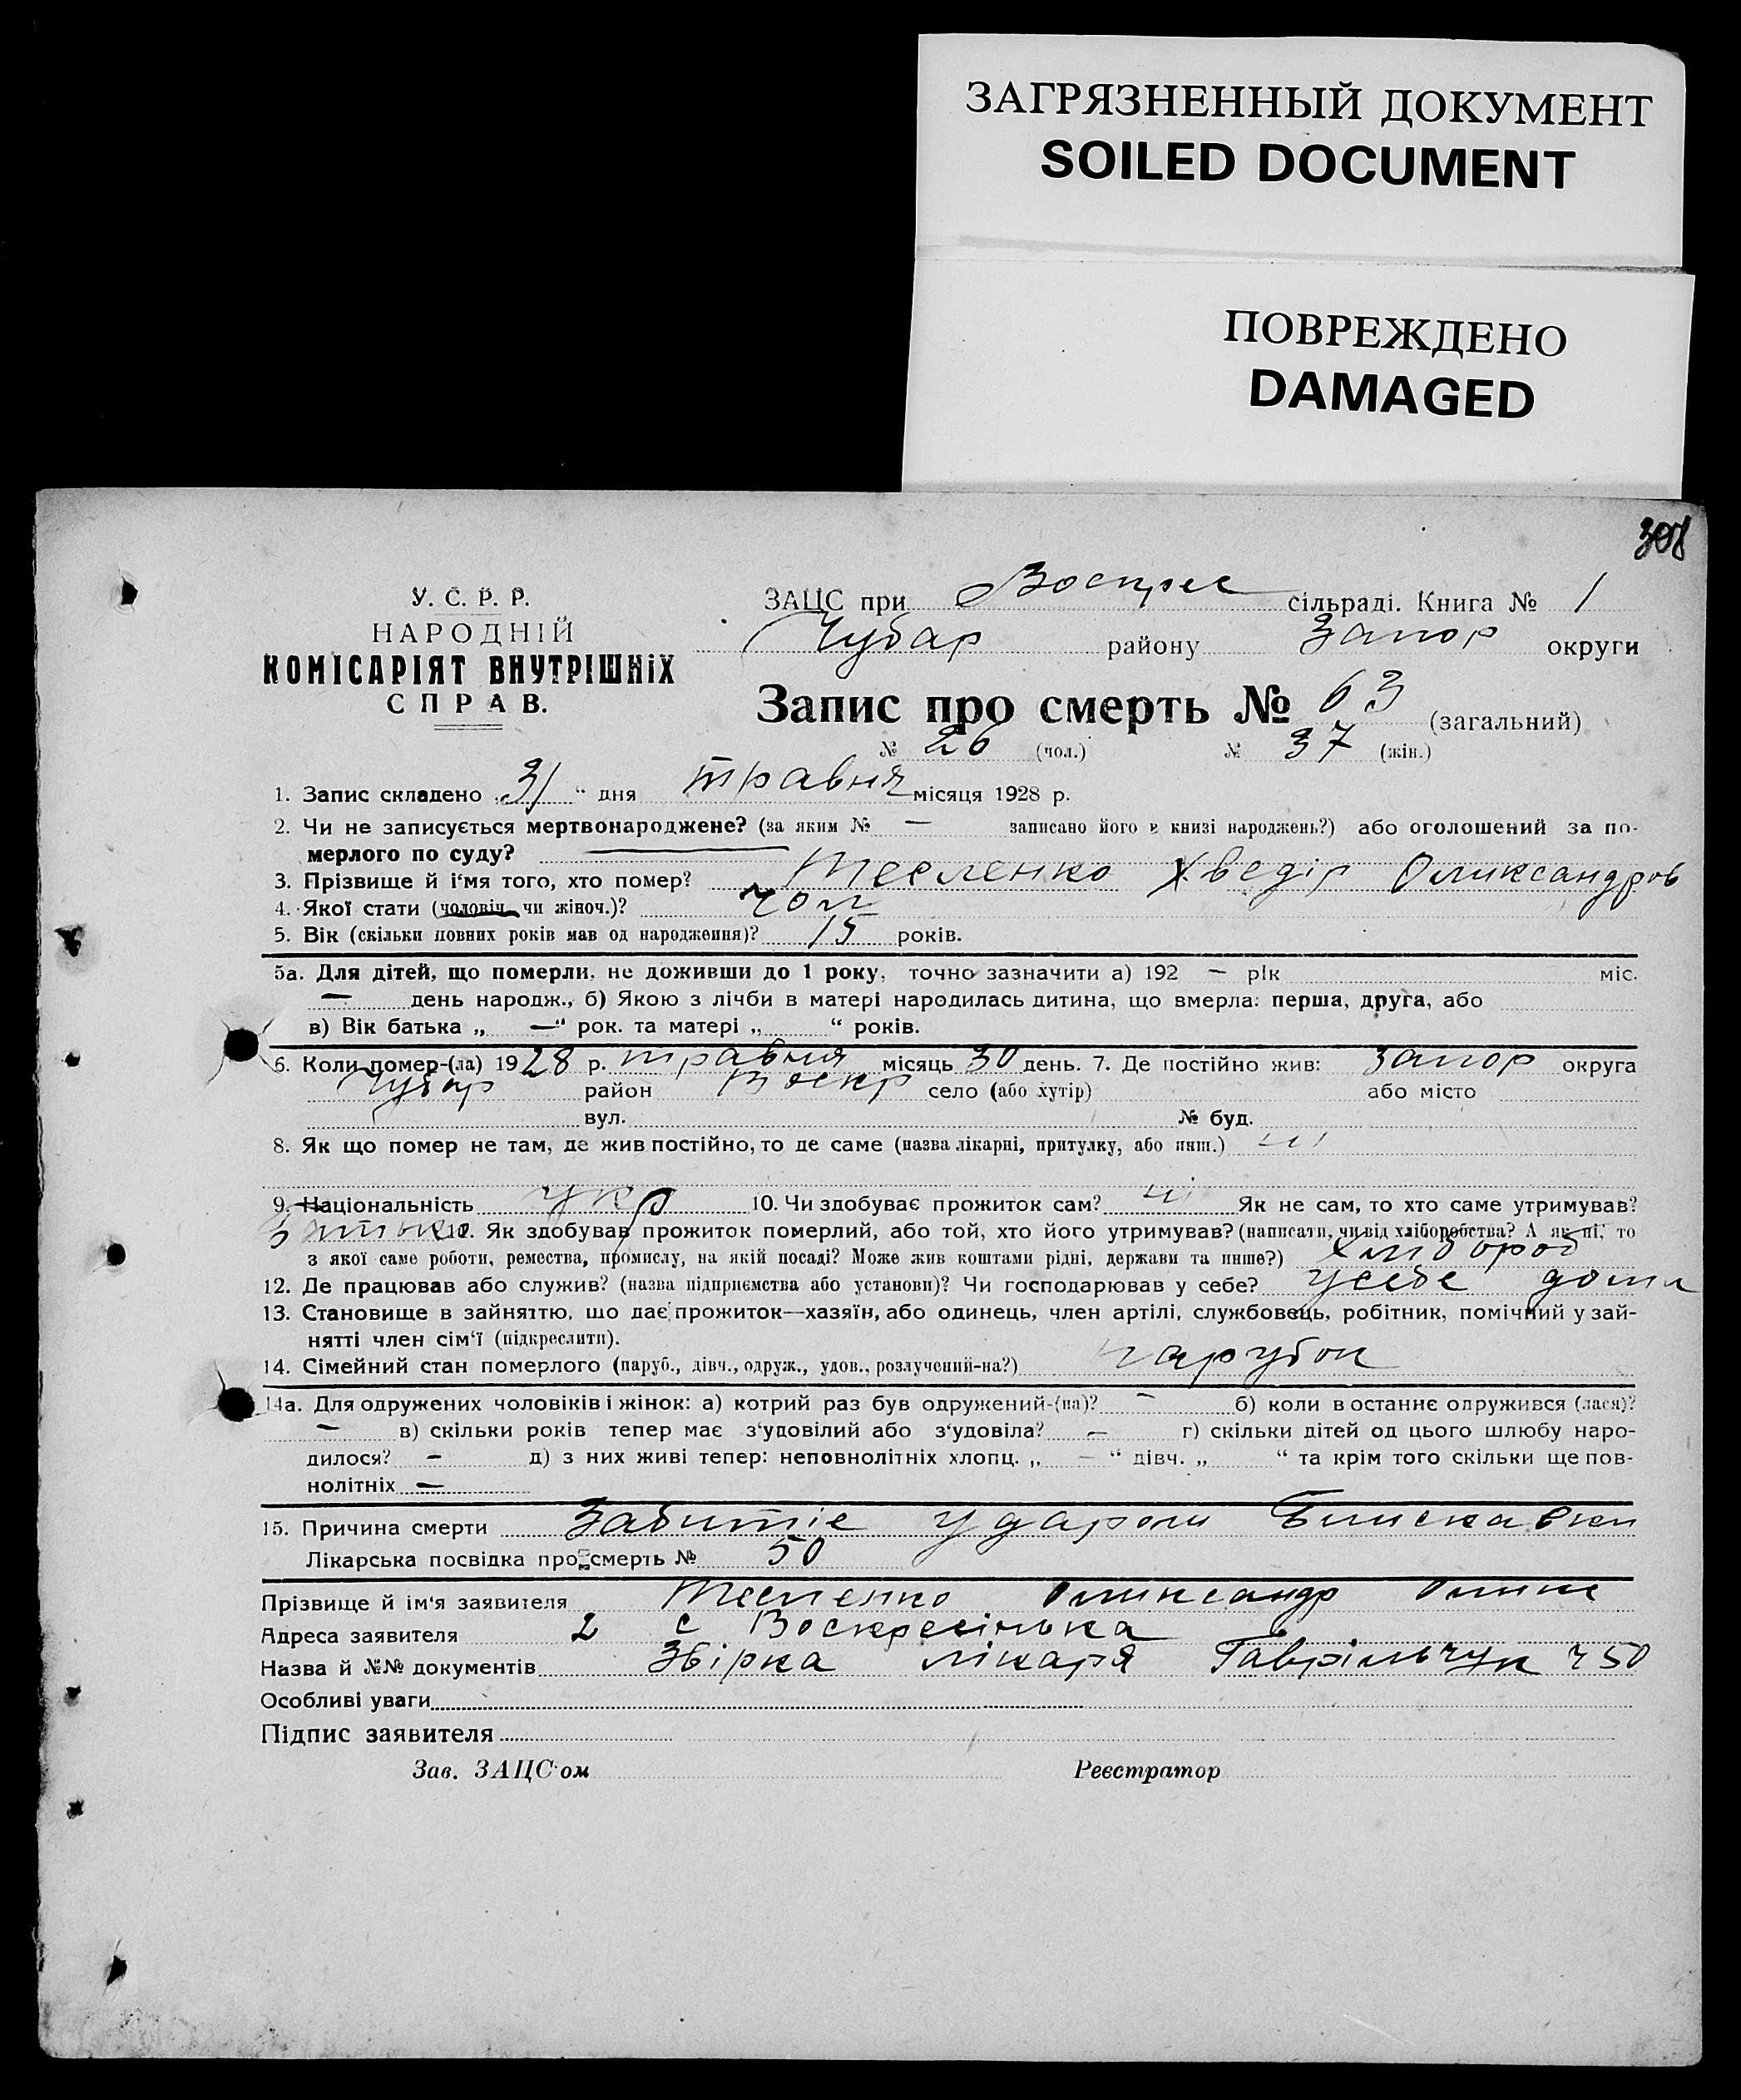 ЗАГРЯЗНЕННЫЙ ДОКУМЕНТ
SOILED DOCUMENT
ПОВРЕЖДЕНО
DAMAGED
308
У. С. Р. Р.
НАРОДНІЙ
КОМІСАРІЯТ ВНУТРІШНІХ
СПРАВ.
ЗАЦС при Воскрес сільраді. Книга № 1
Чубар району Запор округи
Запис про смерть № 63 (загальний)
№ 26 (чол.) № 37 (жін.)
1. Запис складено „31“ дня травня місяця 1928 р.
2. Чи не записується мертвонароджене? (за яким № — записано його в книзі народжень?) або оголошений за по-
мерлого по суду? —
3. Прізвище й і'мя того, хто помер? Тесленко Хведір Оликсандров
4. Якої стати (чоловіч. чи жіноч.)? чол
5. Вік (скільки повних років мав од народження)? 15 років.
5а. Для дітей, що померли, не доживши до 1 року, точно зазначити а) 192 — рік міс.
— день народж., б) Якою з лічби в матері народилась дитина, що вмерла: перша, друга, або
в) Вік батька „ —“ рок. та матері „ “ років.
6. Коли помер-(ла) 1928 р. травня місяць 30 день. 7. Де постійно жив: Запор округа
Чубар район Воскр село (або хутір) або місто
вул. № буд.
8. Як що помер не там, де жив постійно, то де саме (назва лікарні, притулку, або инш.) ні
9. Національність укр 10. Чи здобуває прожиток сам? ні Як не сам, то хто саме утримував?
батько 11. Як здобував прожиток померлий, або той, хто його утримував? (написати, чи від хліборобства? А як ні, то
з якої саме роботи, ремества, промислу, на якій посаді? Може жив коштами рідні, держави та инше?) хлібороб
12. Де працював або служив? (назва підприємства або установи)? Чи господарював у себе? усебе дома
13. Становище в зайняттю, що дає прожиток—хазяїн, або одинець, член артілі, службовець, робітник, помічний у зай-
нятті член сім'ї (підкреслити).
14. Сімейний стан померлого (паруб., дівч., одруж., удов., розлучений-на?) парубок
14а. Для одружених чоловіків і жінок: а) котрий раз був одружений-(на)? — б) коли востаннє одружився (лася)?
— в) скільки років тепер має з'удовілий або з'удовіла? — г) скільки дітей од цього шлюбу наро-
дилося? — д) з них живі тепер: неповнолітніх хлопц. „ — “ дівч. „ “ та крім того скільки ще пов-
нолітніх —
15. Причина смерти Забитіе ударом Блискавки
Лікарська посвідка про смерть № 50
Прізвище й ім'я заявителя Тесленко Оликсандр
Адреса заявителя с Воскресінька
Назва й №№ документів Звірка лікаря Гаврільчук ч 50
Особливі уваги
Підпис заявителя
Зав. ЗАЦС'ом Реєстратор